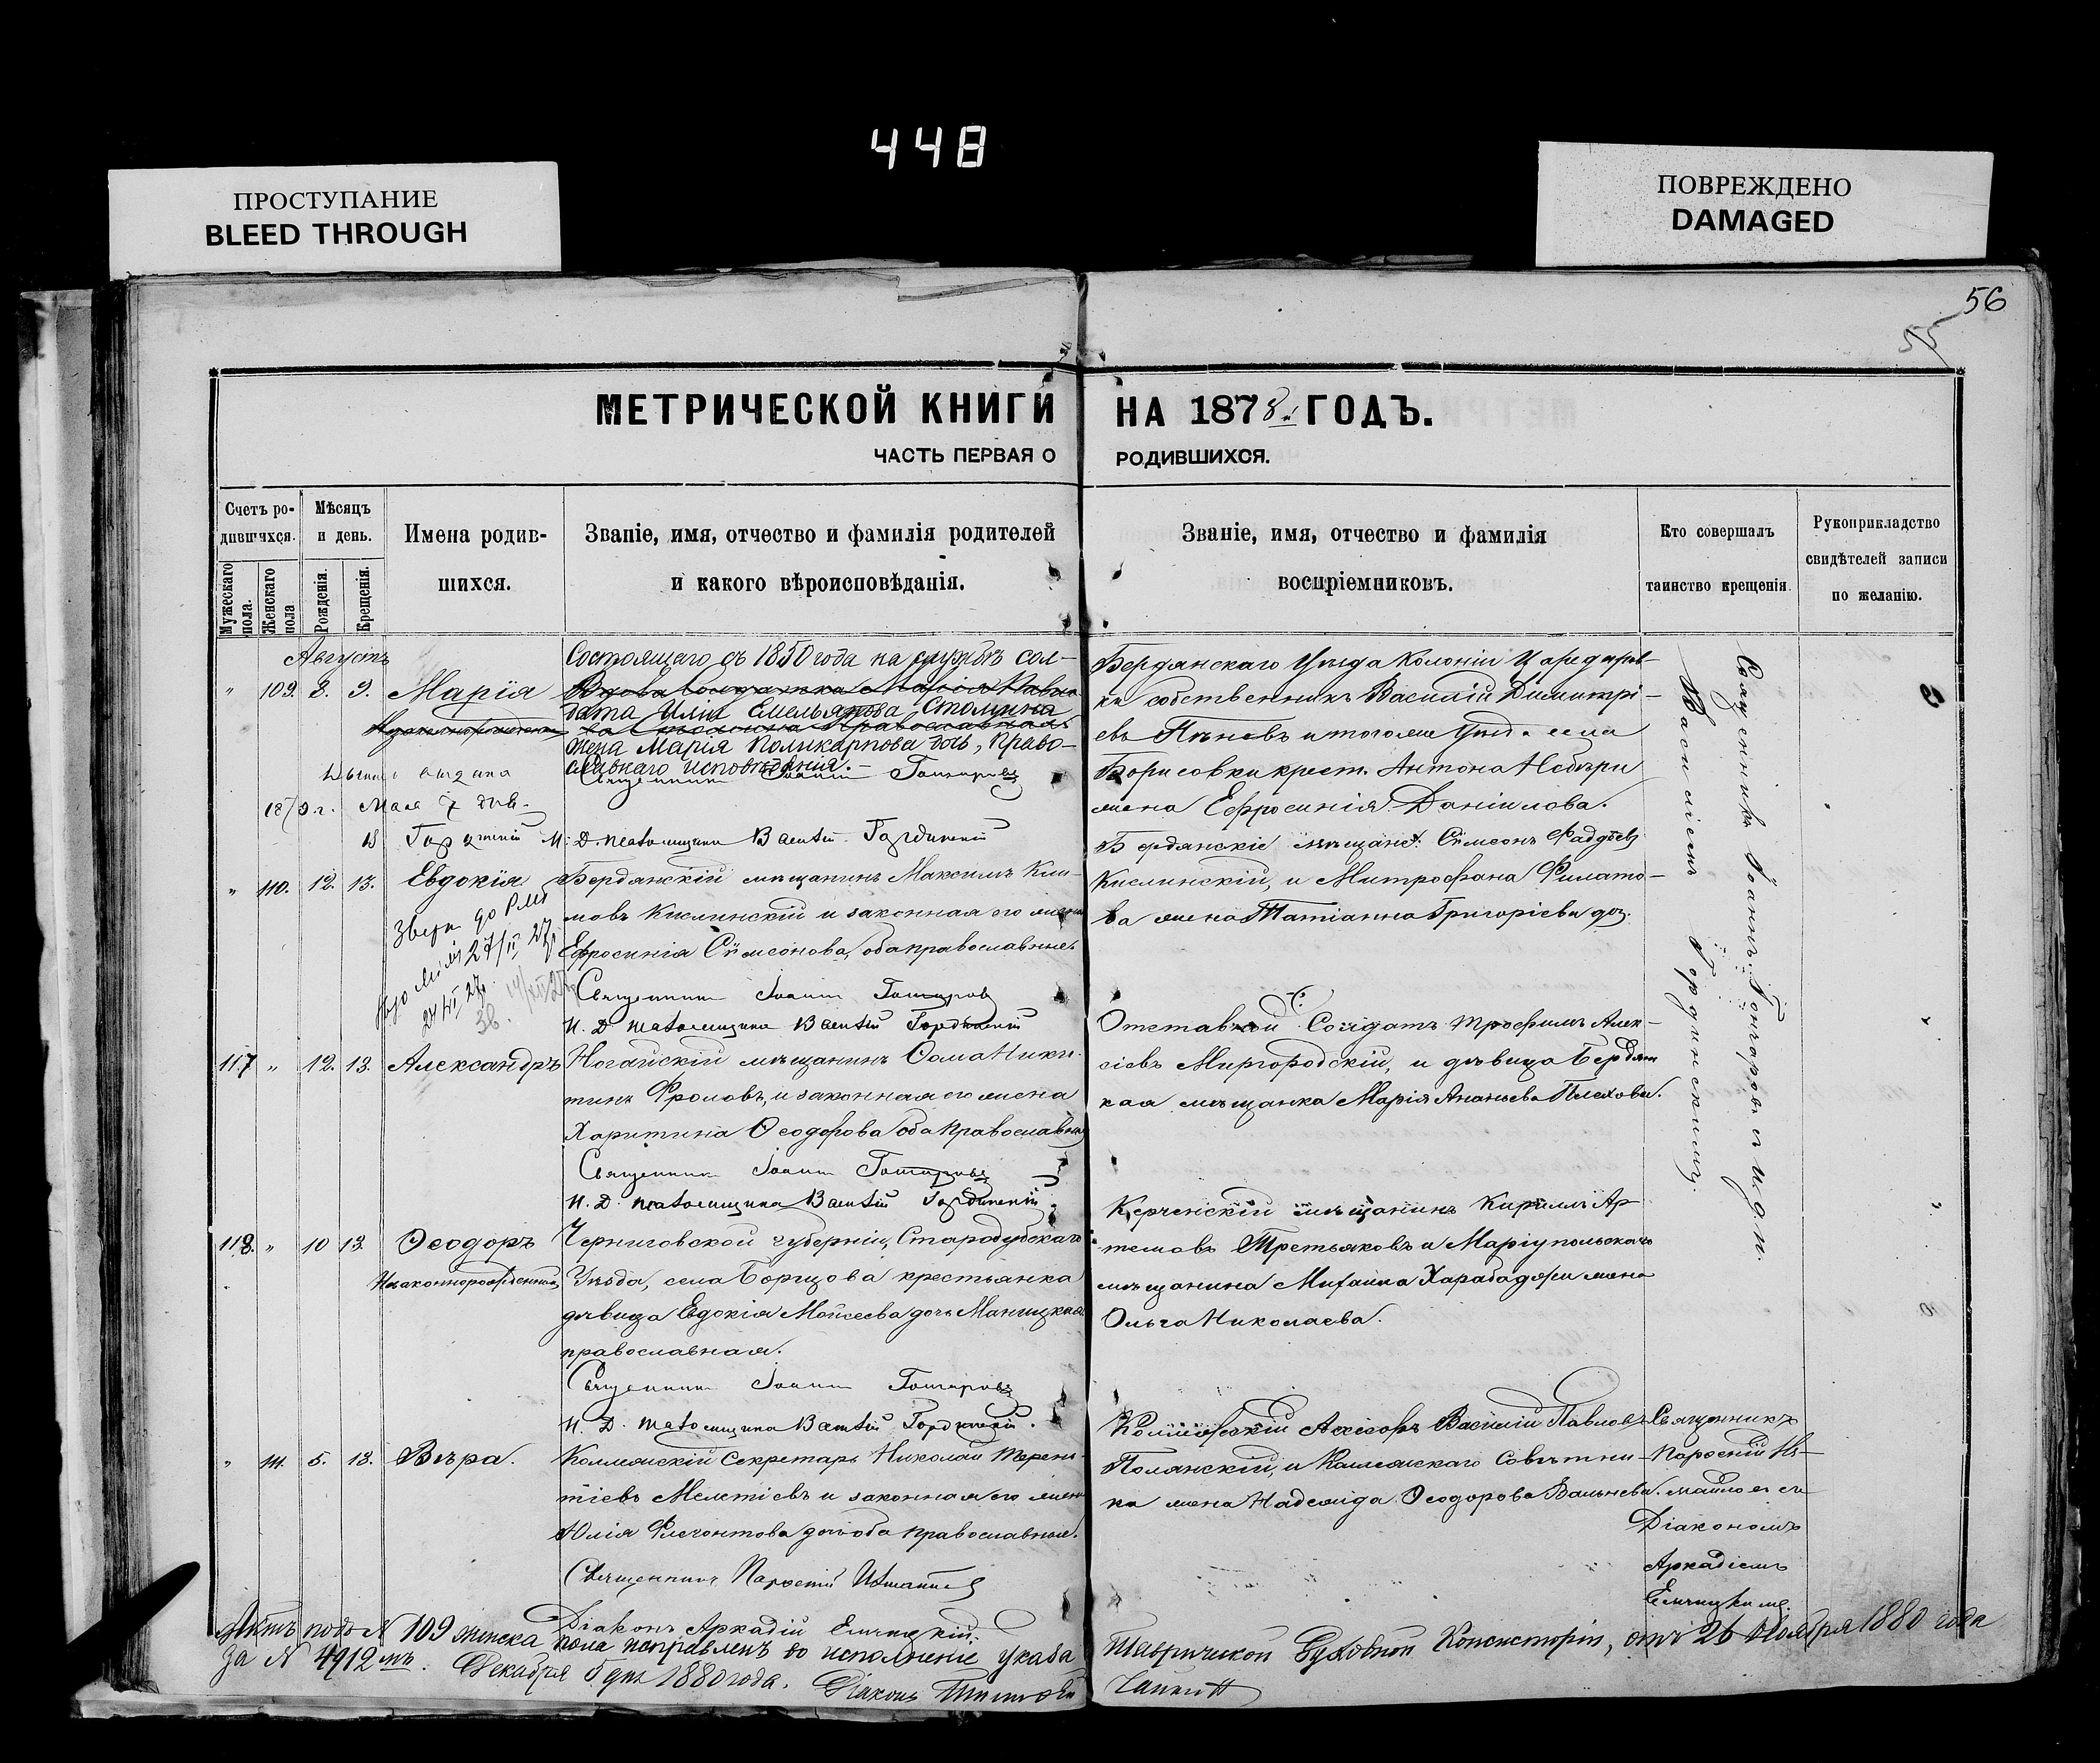 448
ПРОСТУПАНИЕ
BLEED THROUGH
ПОВРЕЖДЕНО
DAMAGED
56
55
МЕТРИЧЕСКОЙ КНИГИ НА 1878 ГОДЪ.
ЧАСТЬ ПЕРВАЯ О РОДИВШИХСЯ.
Счетъ ро-
дившихся.
Мужескаго пола.
Женскаго пола
Мѣсяцъ
и день.
Рожденія.
Крещенія.
Имена родив-
шихся.
Званіе, имя, отчество и фамилія родителей
и какого вѣроисповѣданія.
Званіе, имя, отчество и фамилія
воспріемниковъ.
Кто совершалъ
таинство крещенія
Рукоприкладство
свидѣтелей записи
по желанію.
Августъ
" 109. 8. 9. Марія
Состоящаго съ 1850 года на службѣ сол-
дата Иліи Емельянова Столина
жена Марія Поликарпова дочь, Право-
славнаго исповѣданія.-
Священникъ Іоаннъ Гончаровъ
1879 г. Мая 7 дня
И. Д. псаломщика Василій Гординскій
Бердянскаго Уѣзда Колоніи Цареидаров-
ки собственникъ Василій Димитрі-
евъ Пѣневъ и того же Уѣзд. села
Борисовки крест. Антона
жена Ефросинія Даніилова.
" 110. 12. 13. Евдокія
Бердянскій мѣщанинъ Максимъ Кли-
мовъ Кислинскій и законная его жена
Ефросинія Сѵмеонова, оба православные.
Священникъ Іоаннъ Гончаровъ
И. Д. псаломщика Василій Гординскій
Бердянскіе мѣщане: Сѵмеонъ Фаддѣевъ
Кислинскій, и Митрофана Филато-
ва жена Татіанна Григоріева доч.
117 " 12. 13. Александръ
Ногайскій мѣщанинъ Ѳома Ники-
тинъ Фроловъ, и законная его жена
Харитина Ѳеодорова оба православные
Священникъ Іоаннъ Гончаровъ
И. Д. псаломщика Василій Гординскій.
Отставной Солдатъ Трофимъ Алек-
сіевъ Миргородскій, и дѣвица Бердянс
кая мѣщанка Марія Ананьева Плехова.
118. " 10 13. Ѳеодоръ
Незаконнорожденный,
Черниговской губерніи, Стародубскаго
Уѣзда, села Борщова крестьянка
дѣвица Евдокія Моисеева дочь
православная.
Священникъ Іоаннъ Гончаровъ
И. Д. псаломщика Василій Гординскій.
Керченскій мѣщанинъ Кириллъ Ар-
темовъ Третьяковъ и Маріупольскаго
мѣщанина Михаила Харабаджи жена
Ольга Николаева.
" 111. 5. 13. Вѣра.
Коллежскій Секретарь Николай Терен-
тіевъ Мелетіевъ и законная его жена
Юлія Флегонтова дочь оба православные.
Священникъ
Діаконъ Аркадій Ельчицкій.
Коллежскій Асесоръ Василій Павловъ
Полянскій, и Коллежскаго Совѣтни-
ка жена Надежда Ѳеодорова Вальнева.
Священникъ Іоаннъ Гончаровъ съ И. д. п.
Василіемъ Гординскимъ.
Священникъ
Діакономъ
Аркадіемъ
Ельчицкимъ.
Актъ подъ № 109 женска пола исправленъ во исполненіе указа Таврической Духовной Консисторіи, отъ 26 Ноября 1880 года
за № 4912мъ. Декабря 5 дня 1880 года. Діаконъ